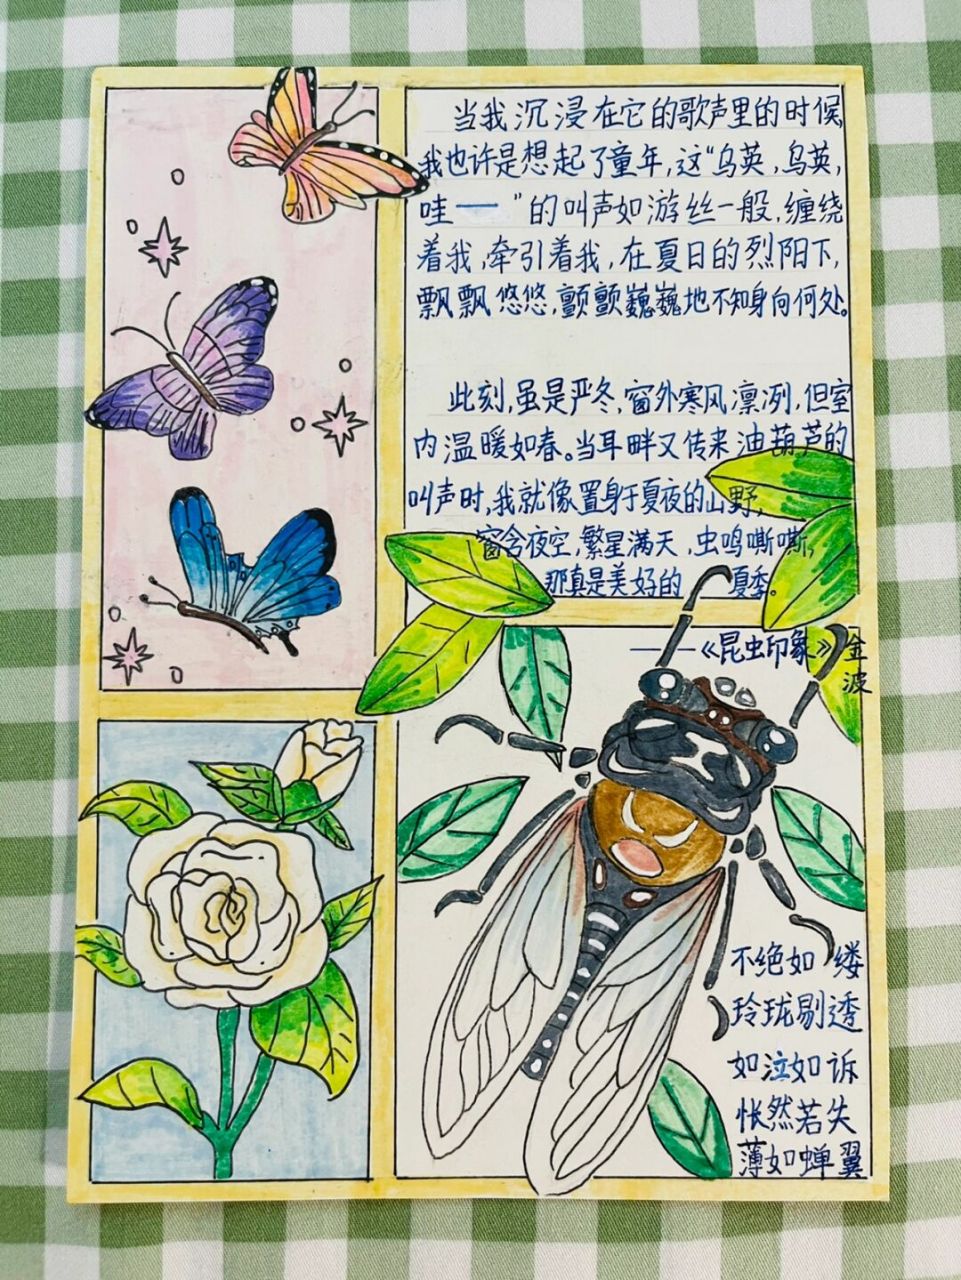 当我沉浸在它的歌声里的时候
我也许是想起了童年,这“乌英,乌英,
哇——”的叫声如游丝一般,缠绕
着我,牵引着我,在夏日的烈阳下,
飘飘悠悠,颤颤巍巍地不知身向何处。
此刻,虽是严冬,窗外寒风凛冽,但室
内温暖如春。当耳畔又传来油葫芦的
叫声时,我就像置身于夏夜的山野,
窗含夜空,繁星满天,虫鸣嘶嘶,
那真是美好的夏季。
——《昆虫印象》金波
不绝如缕
玲珑剔透
如泣如诉
怅然若失
薄如蝉翼